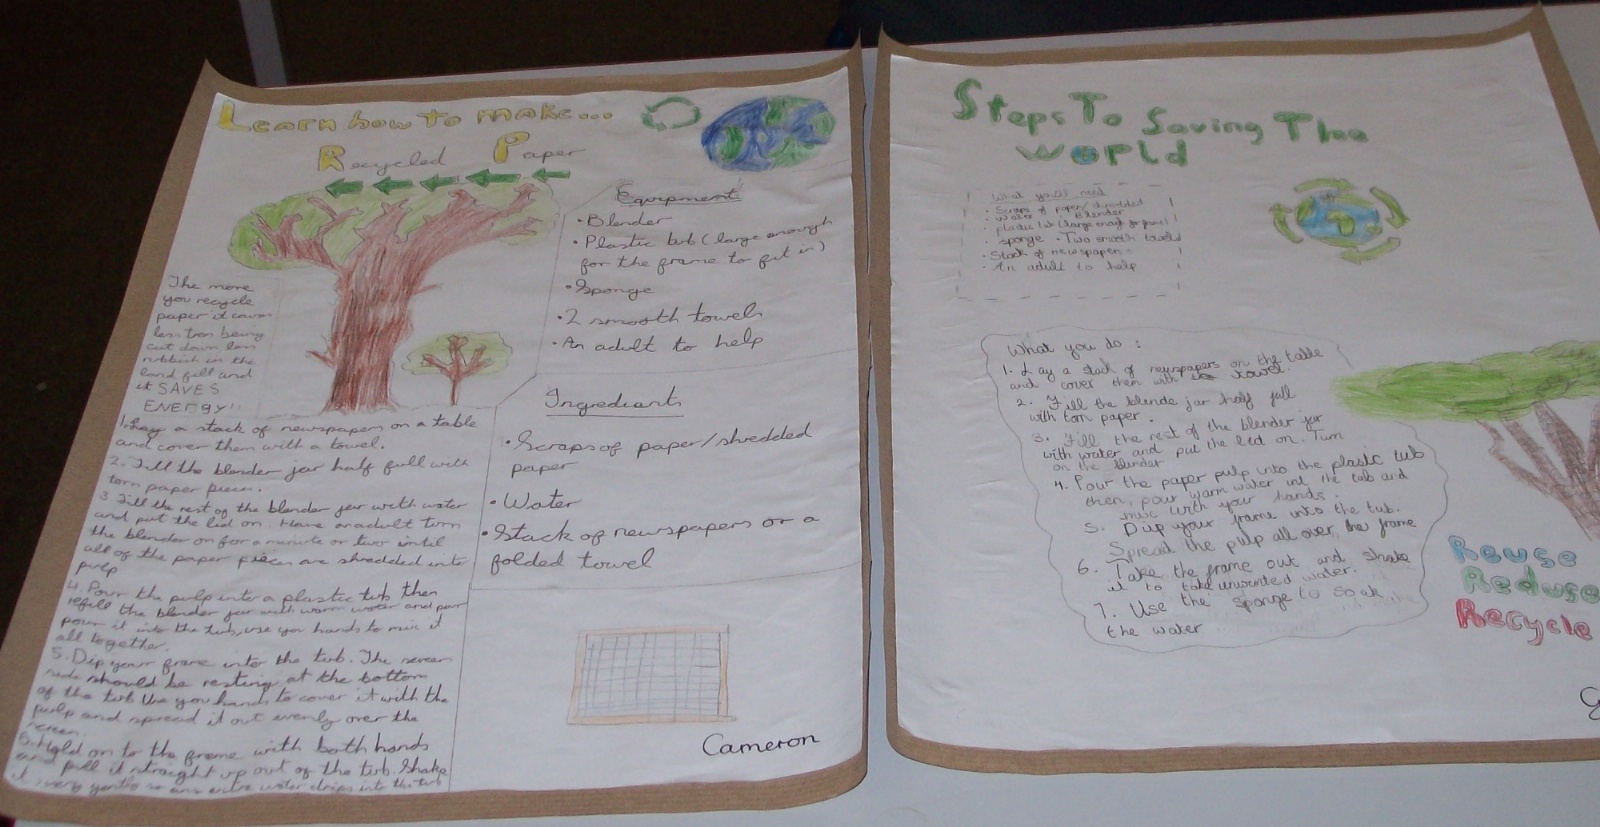 Learn how to make...
Recycled Paper
The more
you recycle
paper it
less trees being
cut down less
rubbish in the
land fill and
it SAVES
ENERGY!
1. Lay a stack of newspapers on a table
and cover them with a towel.
2. Fill the blender jar half full with
torn paper pieces.
3. Fill the rest of the blender jar with water
and put the lid on. Have an adult turn
the blender on for a minute or two until
all of the paper pieces are shredded into
pulp
4. Pour the pulp into a plastic tub then
refill the blender jar with warm water and pour
pour it into the tub, use you hands to mix it
all together.
5. Dip your frame into the tub. The screen
side should be resting at the bottom
of the tub Use you hands to cover it with the
pulp and spread it out evenly over the
screen.
6. Hold on to the frame with both hands
and pull it straight up out of the tub. Shake
it very gently so water drips into the tub
Equipment
• Blender
• Plastic tub (large enough
for the frame to fit in)
• Sponge
• 2 smooth towels
• An adult to help
Ingrediants
• Scraps of paper/shredded
paper
• Water
• Stack of newspapers or a
folded towel
Cameron
Steps To Saving The
World
What you'll need
• Scraps of paper/shredded
• Water • Blender
• plastic tub (large enough for frame)
• sponge • Two smooth towels
• Stack of newspapers
• An adult to help
What you do :
1. Lay a stack of newspapers on the table
and cover them with towel.
2. Fill the blende jar half full
with torn paper.
3. Fill the rest of the blender jar
with water and put the lid on. Turn
on the blender
4. Pour the paper pulp into the plastic tub
then, pour warm water in the tub and
mix with your hands.
5. Dip your frame into the tub.
Spread the pulp all over the frame
6. Take the frame out and shake
it to take unwanted water.
7. Use the sponge to soak
the water
Reuse
Reduse
Recycle